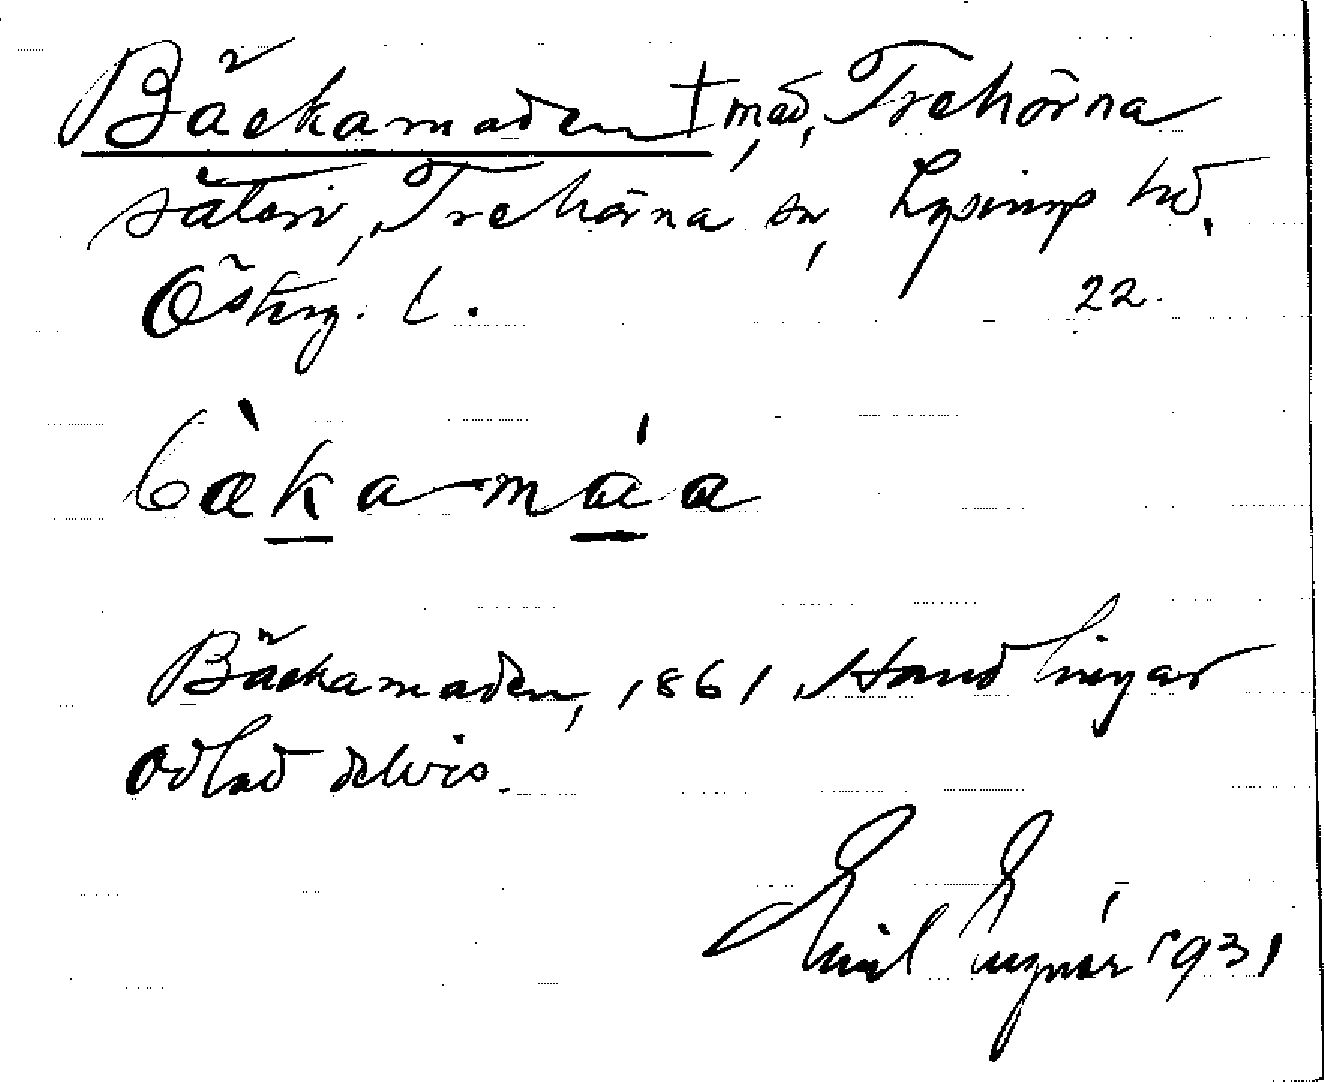 Bäckamaden † mad, Trehörna
säteri, Trehörna sn, Lysings hd.
Österg. l. 22.
bäka-máa
Bäckamaden, 1861 Handlingar
Odlad delvis.
Emil Engnér 1931